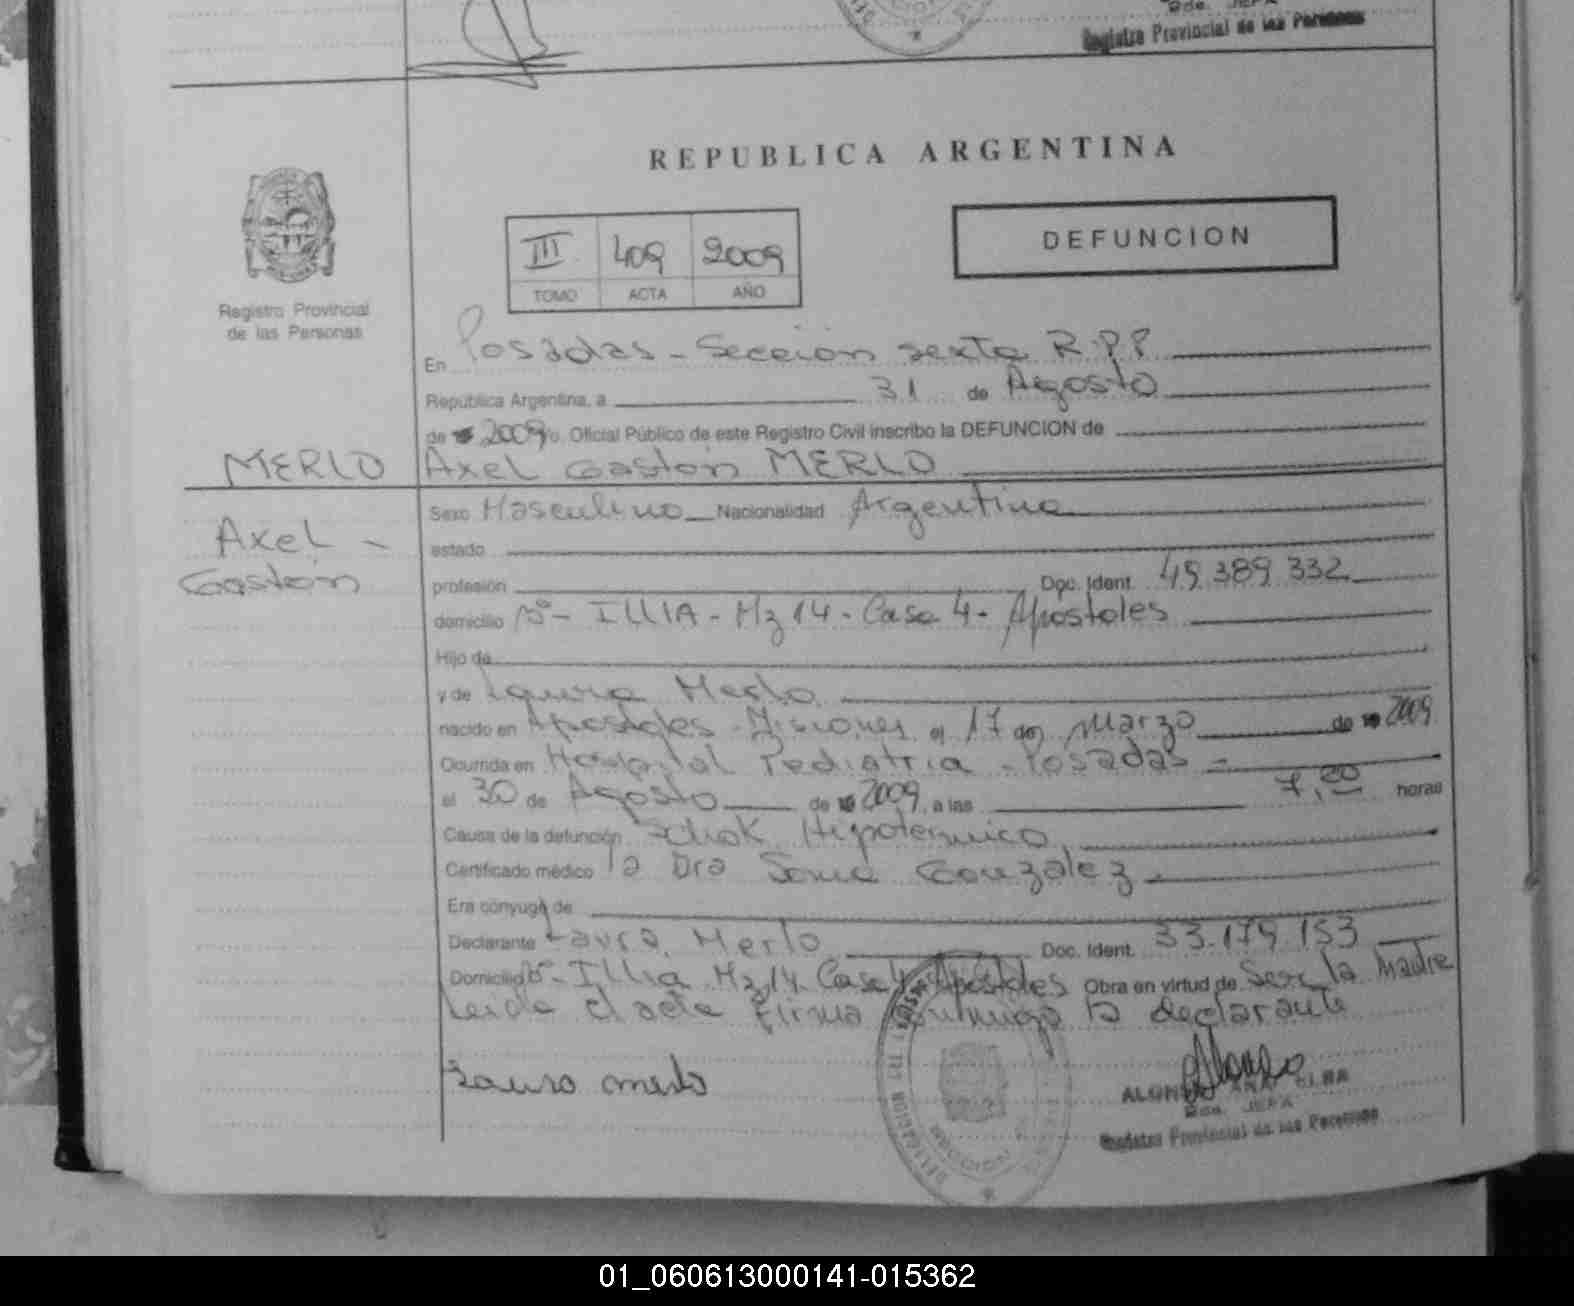 Registro Provincial de las Personas
REPUBLICA ARGENTINA
DEFUNCION
III 409 2009
TOMO ACTA AÑO
Registro Provincial
de las Personas
En Posadas - Sección sexta R.P.P.
República Argentina, a 31 de Agosto
de 2009 yo, Oficial Público de este Registro Civil inscribo la DEFUNCION de
MERLO Axel Gastón MERLO
Sexo Masculino Nacionalidad Argentina
Axel -
Gastón
estado
profesión Doc. Ident. 49.389.332
domicilio Bº - ILLIA - Mz 14 - Casa 4 - Apostoles
Hijo de
y de Laura Merlo
nacido en Apostoles - Misiones el 17 de Marzo de 2009
Ocurrida en Hospital Pediatria - Posadas -
el 30 de Agosto de 2009, a las 7,20 horas
Causa de la defunción Schok Hipotermico
Certificado médico la Dra Gonzalez
Era cónyuge de
Declarante Laura Merlo Doc. Ident. 33.179.153
Domicilio Bº - Illia Mz 14 Casa 4 Apóstoles Obra en virtud de Ser la Madre
Leida el acta firma conmigo la declarante
Laura merlo
ALONSO ANA ELBA
Registro Provincial de las Personas
01_060613000141-015362